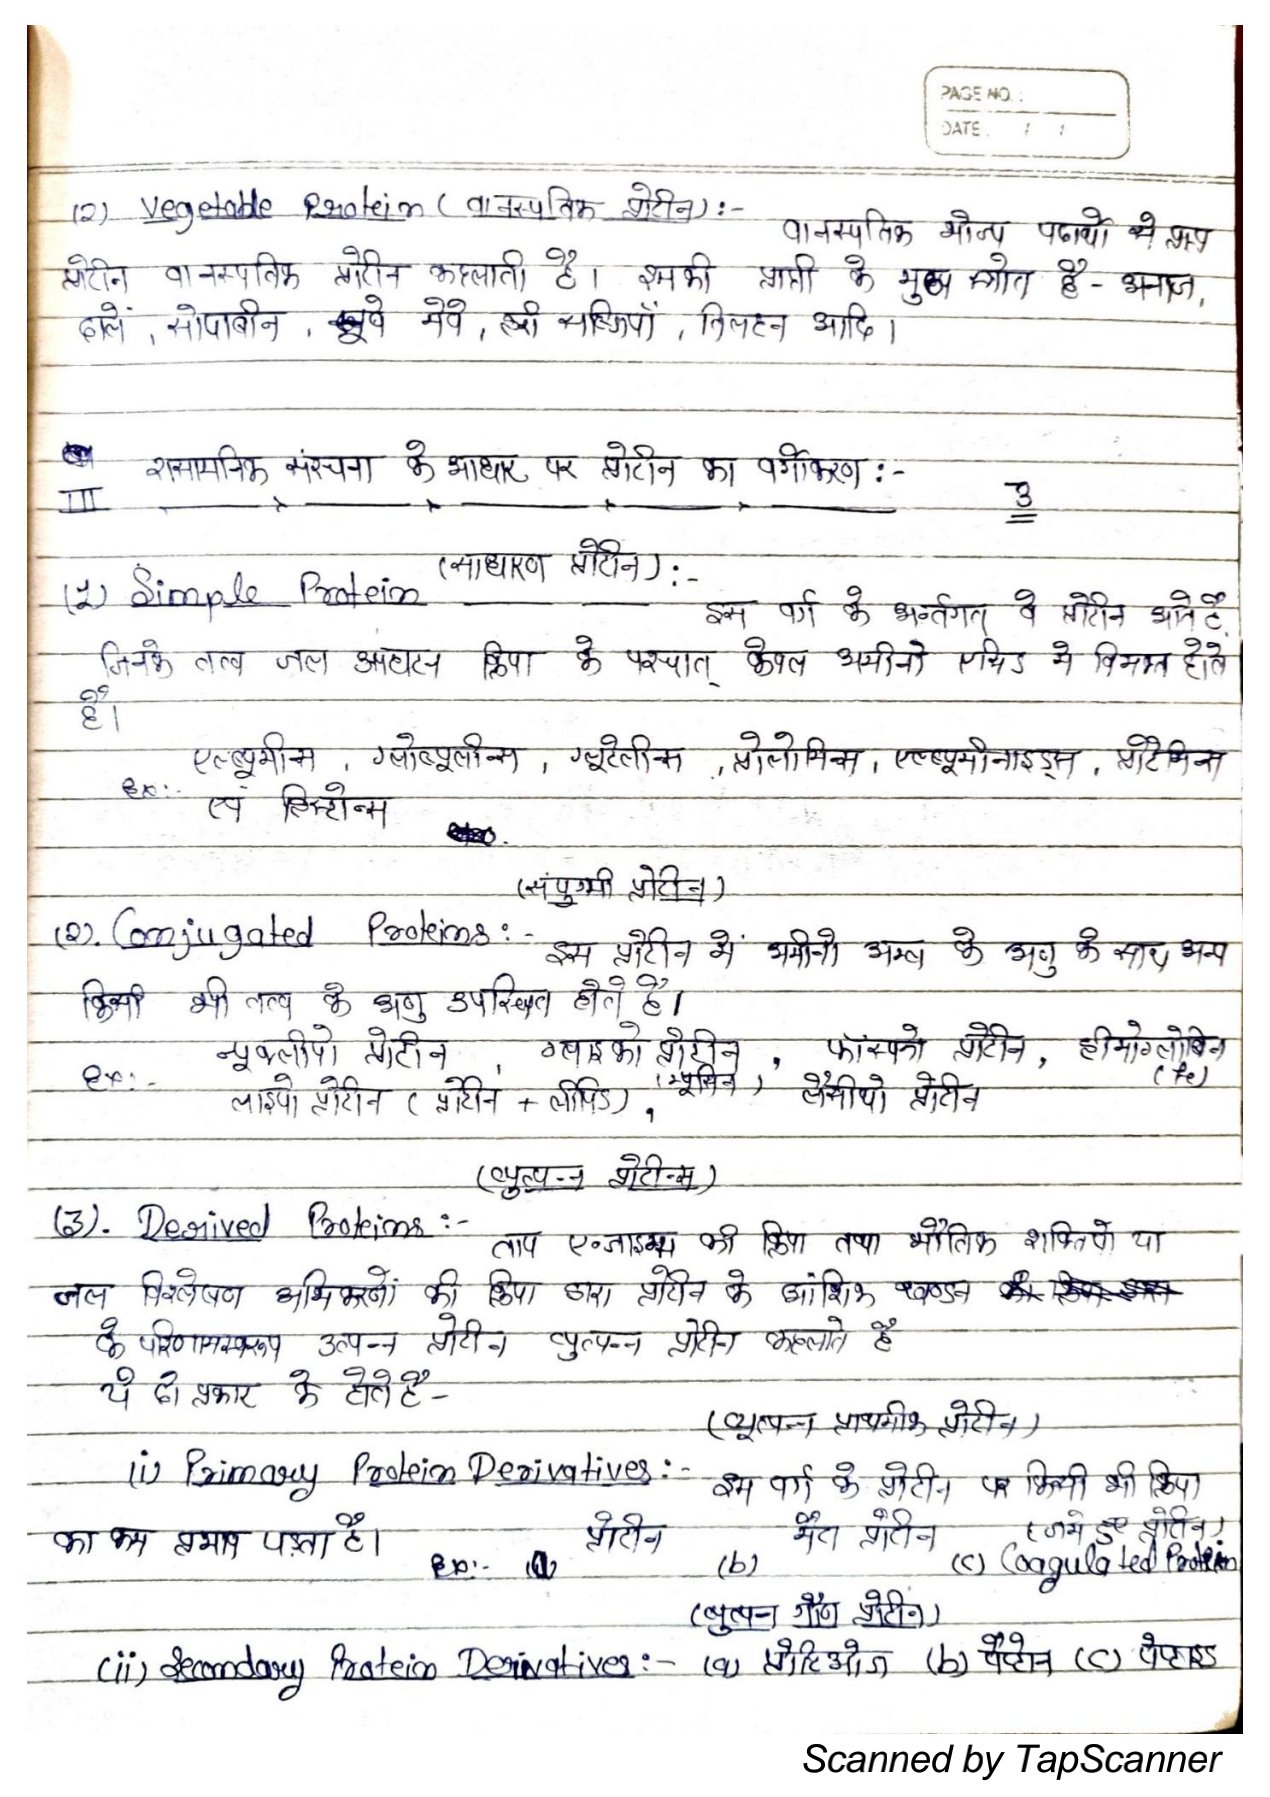 PAGE NO. :
DATE. / /
(2) Vegetable Protein (वानस्पतिक प्रोटीन) :-
वानस्पतिक भोज्य पदार्थो से प्राप्त
प्रोटीन वानस्पतिक प्रोटीन कहलाती है। इसकी प्राप्ती के मुख्य स्त्रोत है - अनाज,
दाले, सोयाबीन, सूखे मेवे, हरी सब्जियाँ, तिलहन आदि।
रासायनिक संरचना के आधार पर प्रोटीन का वर्गीकरण :-
III
3
(साधारण प्रोटीन) :-
(1) Simple Protein
इस वर्ग के अर्न्तगत वे प्रोटीन आते है
जिनके तत्व जल अपघटन क्रिया के पश्चात् केवल अमीनो एसिड मे विभक्त होते
है।
एल्ब्यूमीन्स, ग्लोब्यूलीन्स, ग्लूटेलीन्स, प्रोलोमिन्स, एल्ब्यूमीनाइड्स, प्रोटेमिन्स
Ex:-
एवं हिस्टोन्स
(संयुग्मी प्रोटीन)
(2). Conjugated Proteins :- इस प्रोटीन में अमीनो अम्ल के अणु के साथ अन्य
किसी भी तत्व के अणु उपस्थित होते है।
न्यूक्लीयो प्रोटीन, ग्लाइको प्रोटीन, फॉस्फो प्रोटीन, हीमोग्लोबिन
Ex:- (म्यूसिन) (Fe)
लाइपो प्रोटीन (प्रोटीन + लीपिड), लैसीथो प्रोटीन
(व्युत्पन्न प्रोटीन्स)
(3). Derived Proteins :-
ताप एन्जाइम्स की क्रिया तथा भौतिक शक्तियो या
जल विश्लेषण अभिकर्मको की क्रिया द्वारा प्रोटीन के आंशिक खण्डन
के परिणामस्वरूप उत्पन्न प्रोटीन व्युत्पन्न प्रोटीन कहलाते है
ये दो प्रकार के होते है -
(व्यूत्पन्न प्राथमीक प्रोटीन)
(i) Primary Protein Derivatives :- इस वर्ग के प्रोटीन पर किसी भी क्रिया
का कम प्रभाव पड़ता है। प्रोटीन मैटा प्रोटीन (जमे हुए प्रोटीन)
Ex:- (a) (b) (c) Coagulated Protein
(व्युत्पन्न गौण प्रोटीन)
(ii) Secondary Protein Derivatives :- (a) प्रोटिओज (b) पैप्टोन (c) पेप्टाइड
Scanned by TapScanner